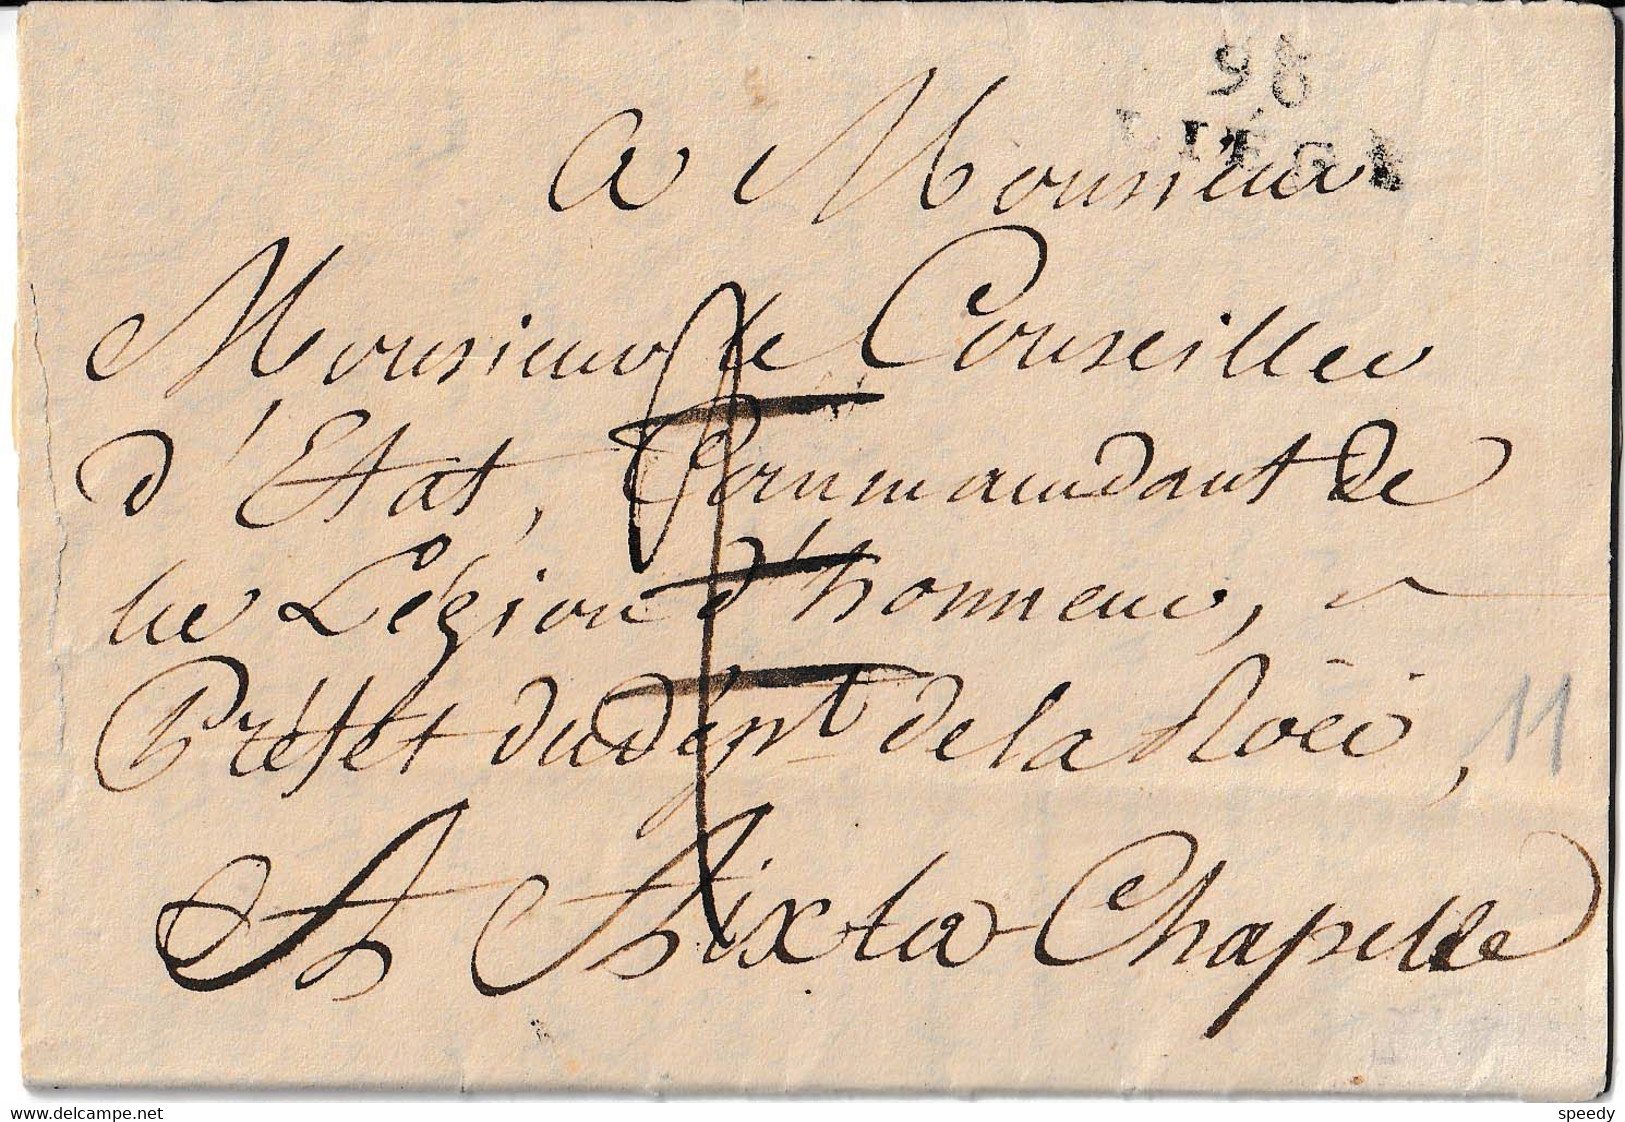 96
LIÉGE
A Monsieur
Monsieur le Conseiller
d'Etat, Commandant de
la Légion d'honneur,
Préfet du dépt de la Roër,
11
A Aix la Chapelle
www.delcampe.net
speedy